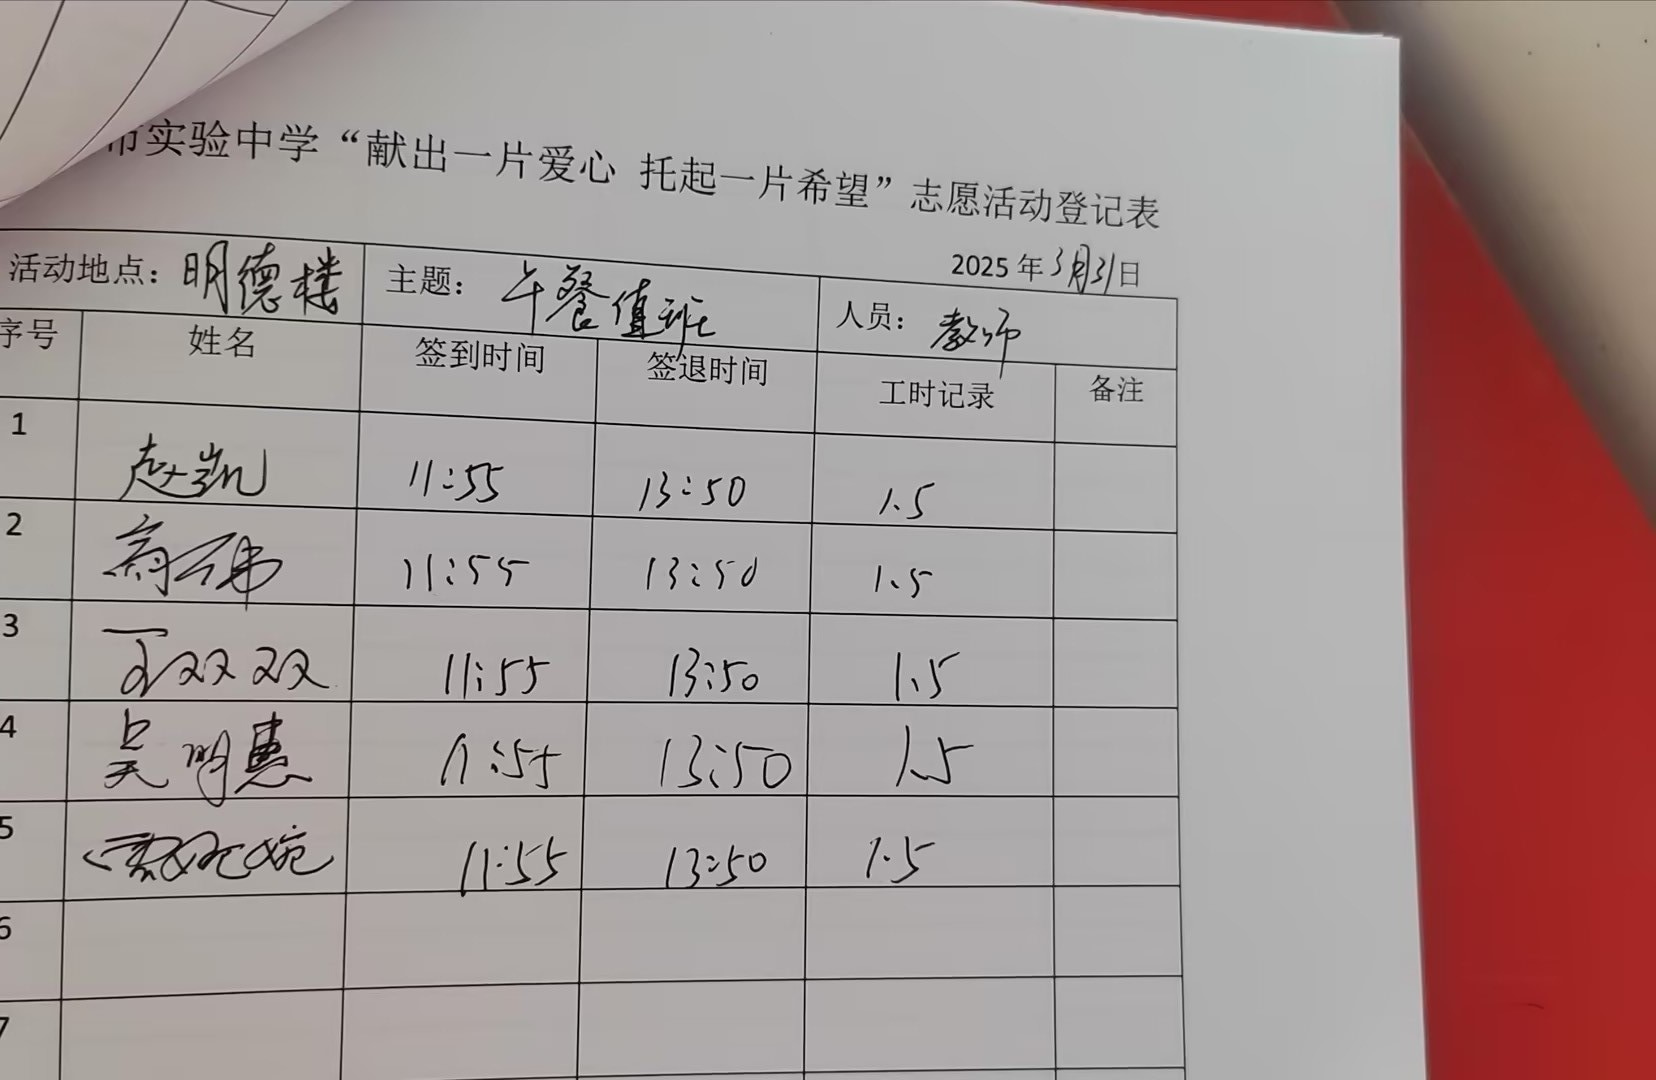 市实验中学“献出一片爱心 托起一片希望”志愿活动登记表
2025年3月31日
活动地点：明德楼 主题：午餐值班 人员：教师
序号 姓名 签到时间 签退时间 工时记录 备注
1 赵凯 11:55 13:50 1.5
2 11:55 13:50 1.5
3 王双双 11:55 13:50 1.5
4 吴明惠 11:55 13:50 1.5
5 11:55 13:50 1.5
6
7